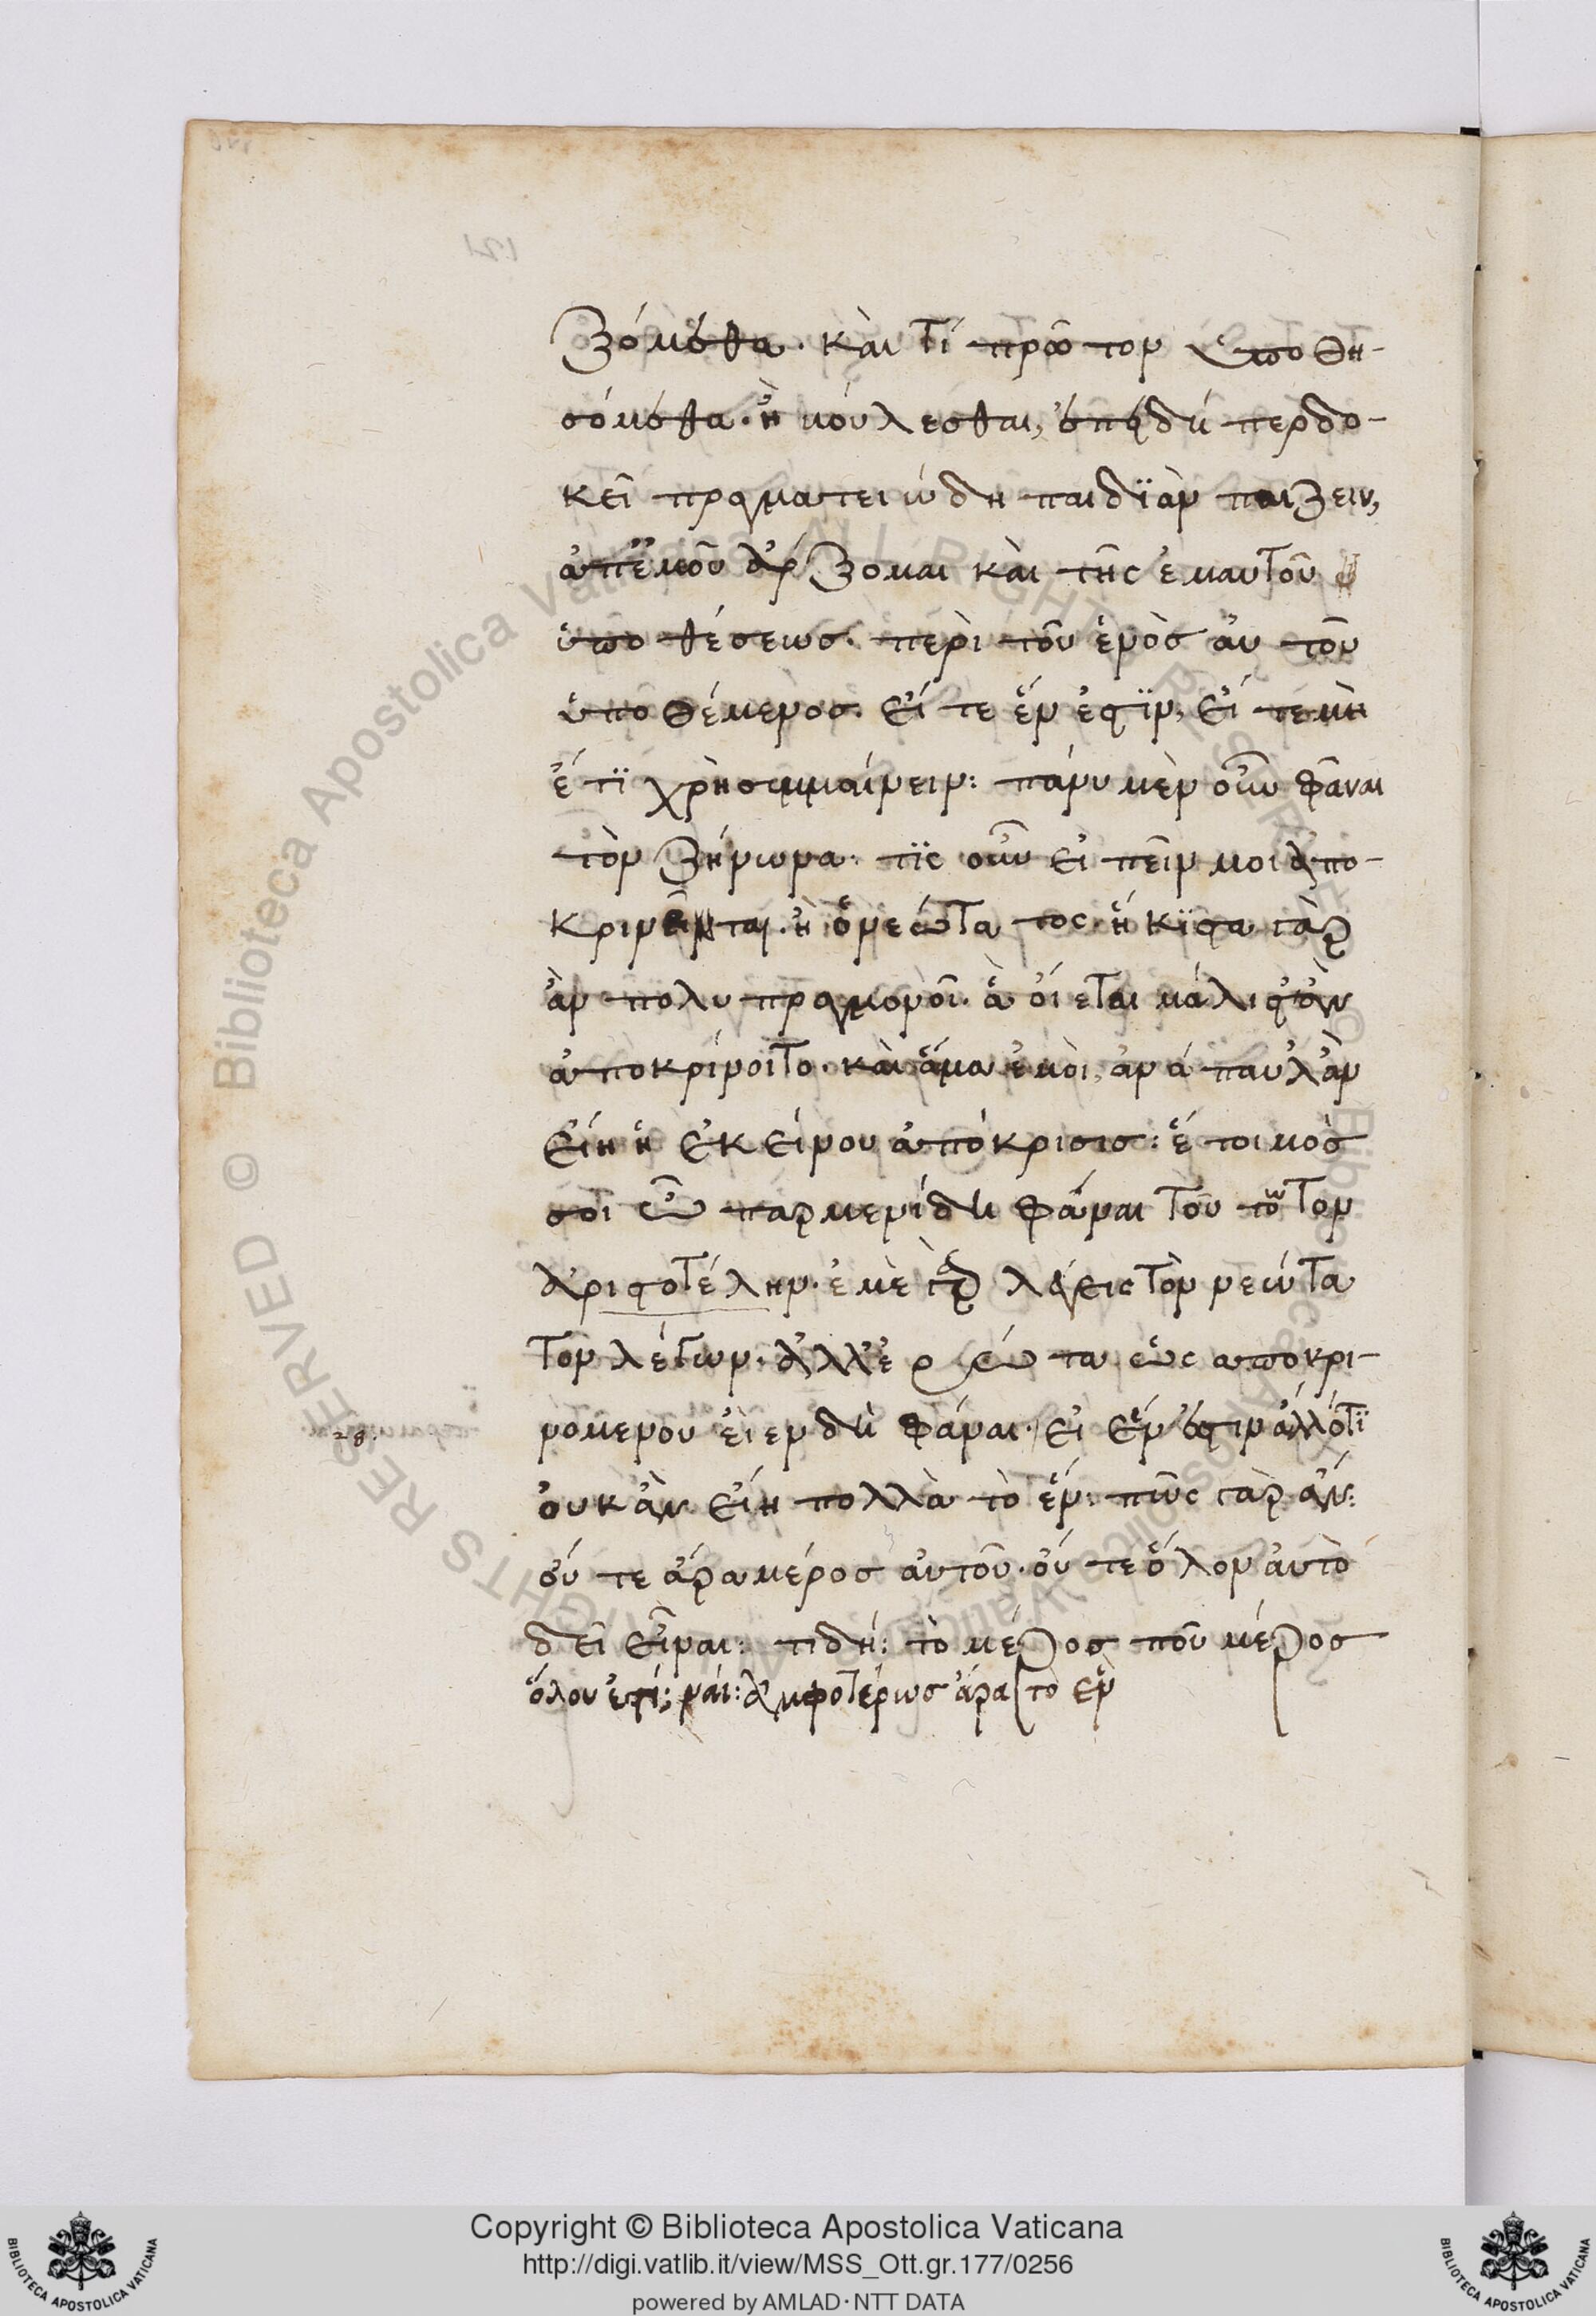 ξόμεθα. καὶ τί πρῶτον ὑποθη-
σόμεθα. ἢ βούλεσθαι, ἐπειδή περ δο-
κεῖ πραγματειώδη παιδϊὰν παίζειν,
ἀπ' ἐμοῦ ἄρξομαι καὶ τῆς ἐμαυτοῦ
ὑποθέσεως. περὶ τοῦ ἑνὸς αὐτοῦ
ὑποθέμενος. εἴ τε ἕν ἐστϊν, εἴ τε μὴ
ἕ τϊ χρὴ συμβαίνειν: πάνυ μὲν οὖν φάναι
τὸν ζήνωνα. τϊς οὖν εἰπεῖν μοι ἀπο-
κρινεῖται. ἢ ὁ νεώτατος. ἥκϊστα γὰρ
ἂν πολυπραγμονοῖ. ἃ οἴεται μάλιστ' ἂν
ἀποκρίνοιτο. καὶ ἅμα ἐμοὶ, ἀνάπαυλ' ἂν
εἴη ἡ ἐκείνου ἀπόκρισις: ἕτοιμός
σοι ὦ παρμενίδη φάναι τοῦτον τὸν
ἀριστοτέλην. ἐμὲ γὰρ λέγεις τὸν νεώτα
τον λέγων. ἀλλ' ἐρώτα ὡς ἀποκρι-
νομένου εἶεν δὴ φάναι. εἰ ἕν ἐστιν ἄλλό τϊ
οὐκ ἂν εἴη πολλὰ τὸ ἕν: πῶς γὰρ ἄν:
οὔτε ἄρα μέρος αὐτοῦ. οὔτε ὅλον αὐτὸ
δεῖ εἶναι: τι δή: τὸ μέρος που μέρος
ὅλου ἐστί: ναί: ἀμφοτέρως ἄρα τὸ ἕν
Copyright © Biblioteca Apostolica Vaticana
http://digi.vatlib.it/view/MSS_Ott.gr.177/0256
powered by AMLAD·NTT DATA
BIBLIOTECA APOSTOLICA VATICANA
BIBLIOTECA APOSTOLICA VATICANA